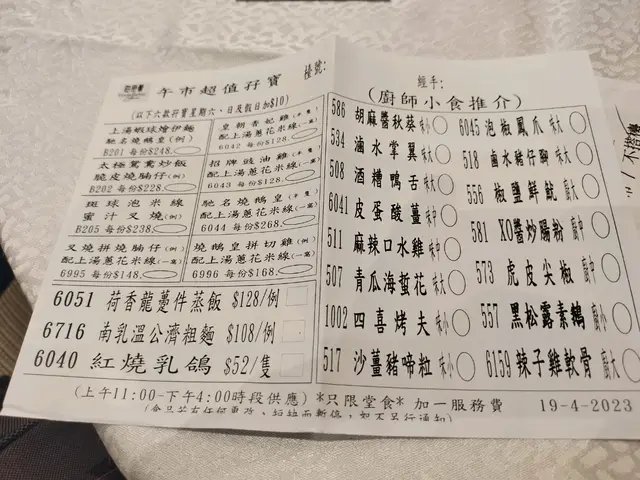 午市超值孖寶
檯號:
(以下六款孖寶星期六、日及假日加$10)
上湯蝦球燴伊麵
馳名燒鵝皇(例)
B201 每份$248.
皇朝香妃雞(半隻)
配上湯蔥花米線(一窩)
6042 每份$128.
太極鴛鴦炒飯
脆皮燒腩仔(例)
B202 每份$228.
招牌豉油雞(半隻)
配上湯蔥花米線(一窩)
6043 每份$128.
斑球泡米線
蜜汁叉燒(例)
B205 每份$238.
馳名燒鵝皇(半隻)
配上湯蔥花米線(一窩)
6044 每份$268.
叉燒拼燒腩仔(例)
配上湯蔥花米線(一窩)
6995 每份$148.
燒鵝皇拼切雞(例)
配上湯蔥花米線(一窩)
6996 每份$168.
6051 荷香龍躉件蒸飯 $128/例
6716 南乳溫公濟粗麵 $108/例
6040 紅燒乳鴿 $52/隻
經手:
(廚師小食推介)
586 胡麻醬秋葵 味小
534 滷水掌翼 味大
508 酒糟鴨舌 味大
6041 皮蛋酸薑 味中
511 麻辣口水雞 味中
507 青瓜海蜇花 味大
1002 四喜烤夫 味小
517 沙薑豬啼粒 味小
6045 泡椒鳳爪 味大
518 鹵水豬仔腳 味大
556 椒鹽鮮魷 廚大
581 XO醬炒腸粉 廚中
573 虎皮尖椒 廚中
557 黑松露素鵝 廚小
6159 辣子雞軟骨 廚大
(上午11:00-下午4:00時段供應) *只限堂食* 加一服務費
19-4-2023
(食品若有任何更改、短缺而暫停,如不另行通知)